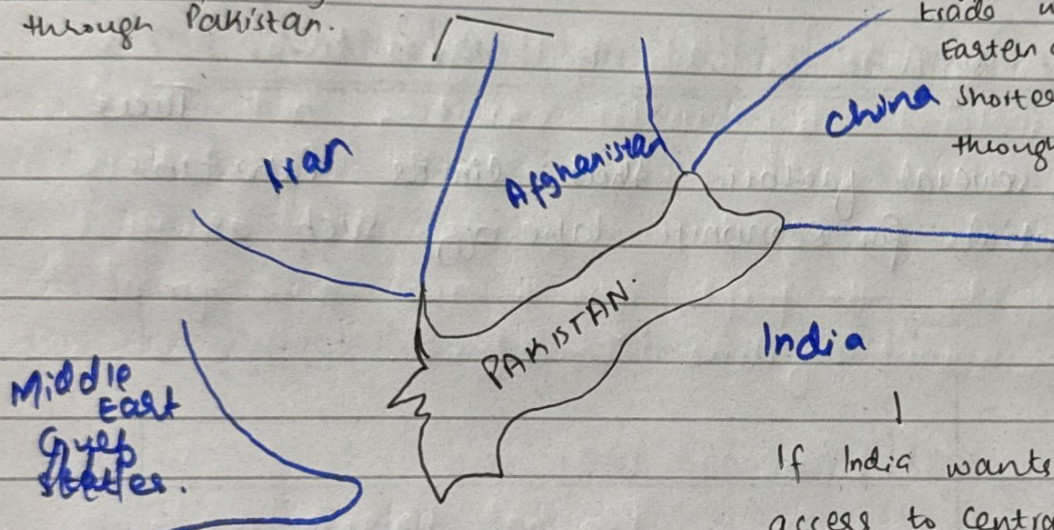 through Pakistan.
trade
Easten
China Shortes
through
Iran
Afghanistan
PAKISTAN.
India
Middle
East
If India wants
access to centra